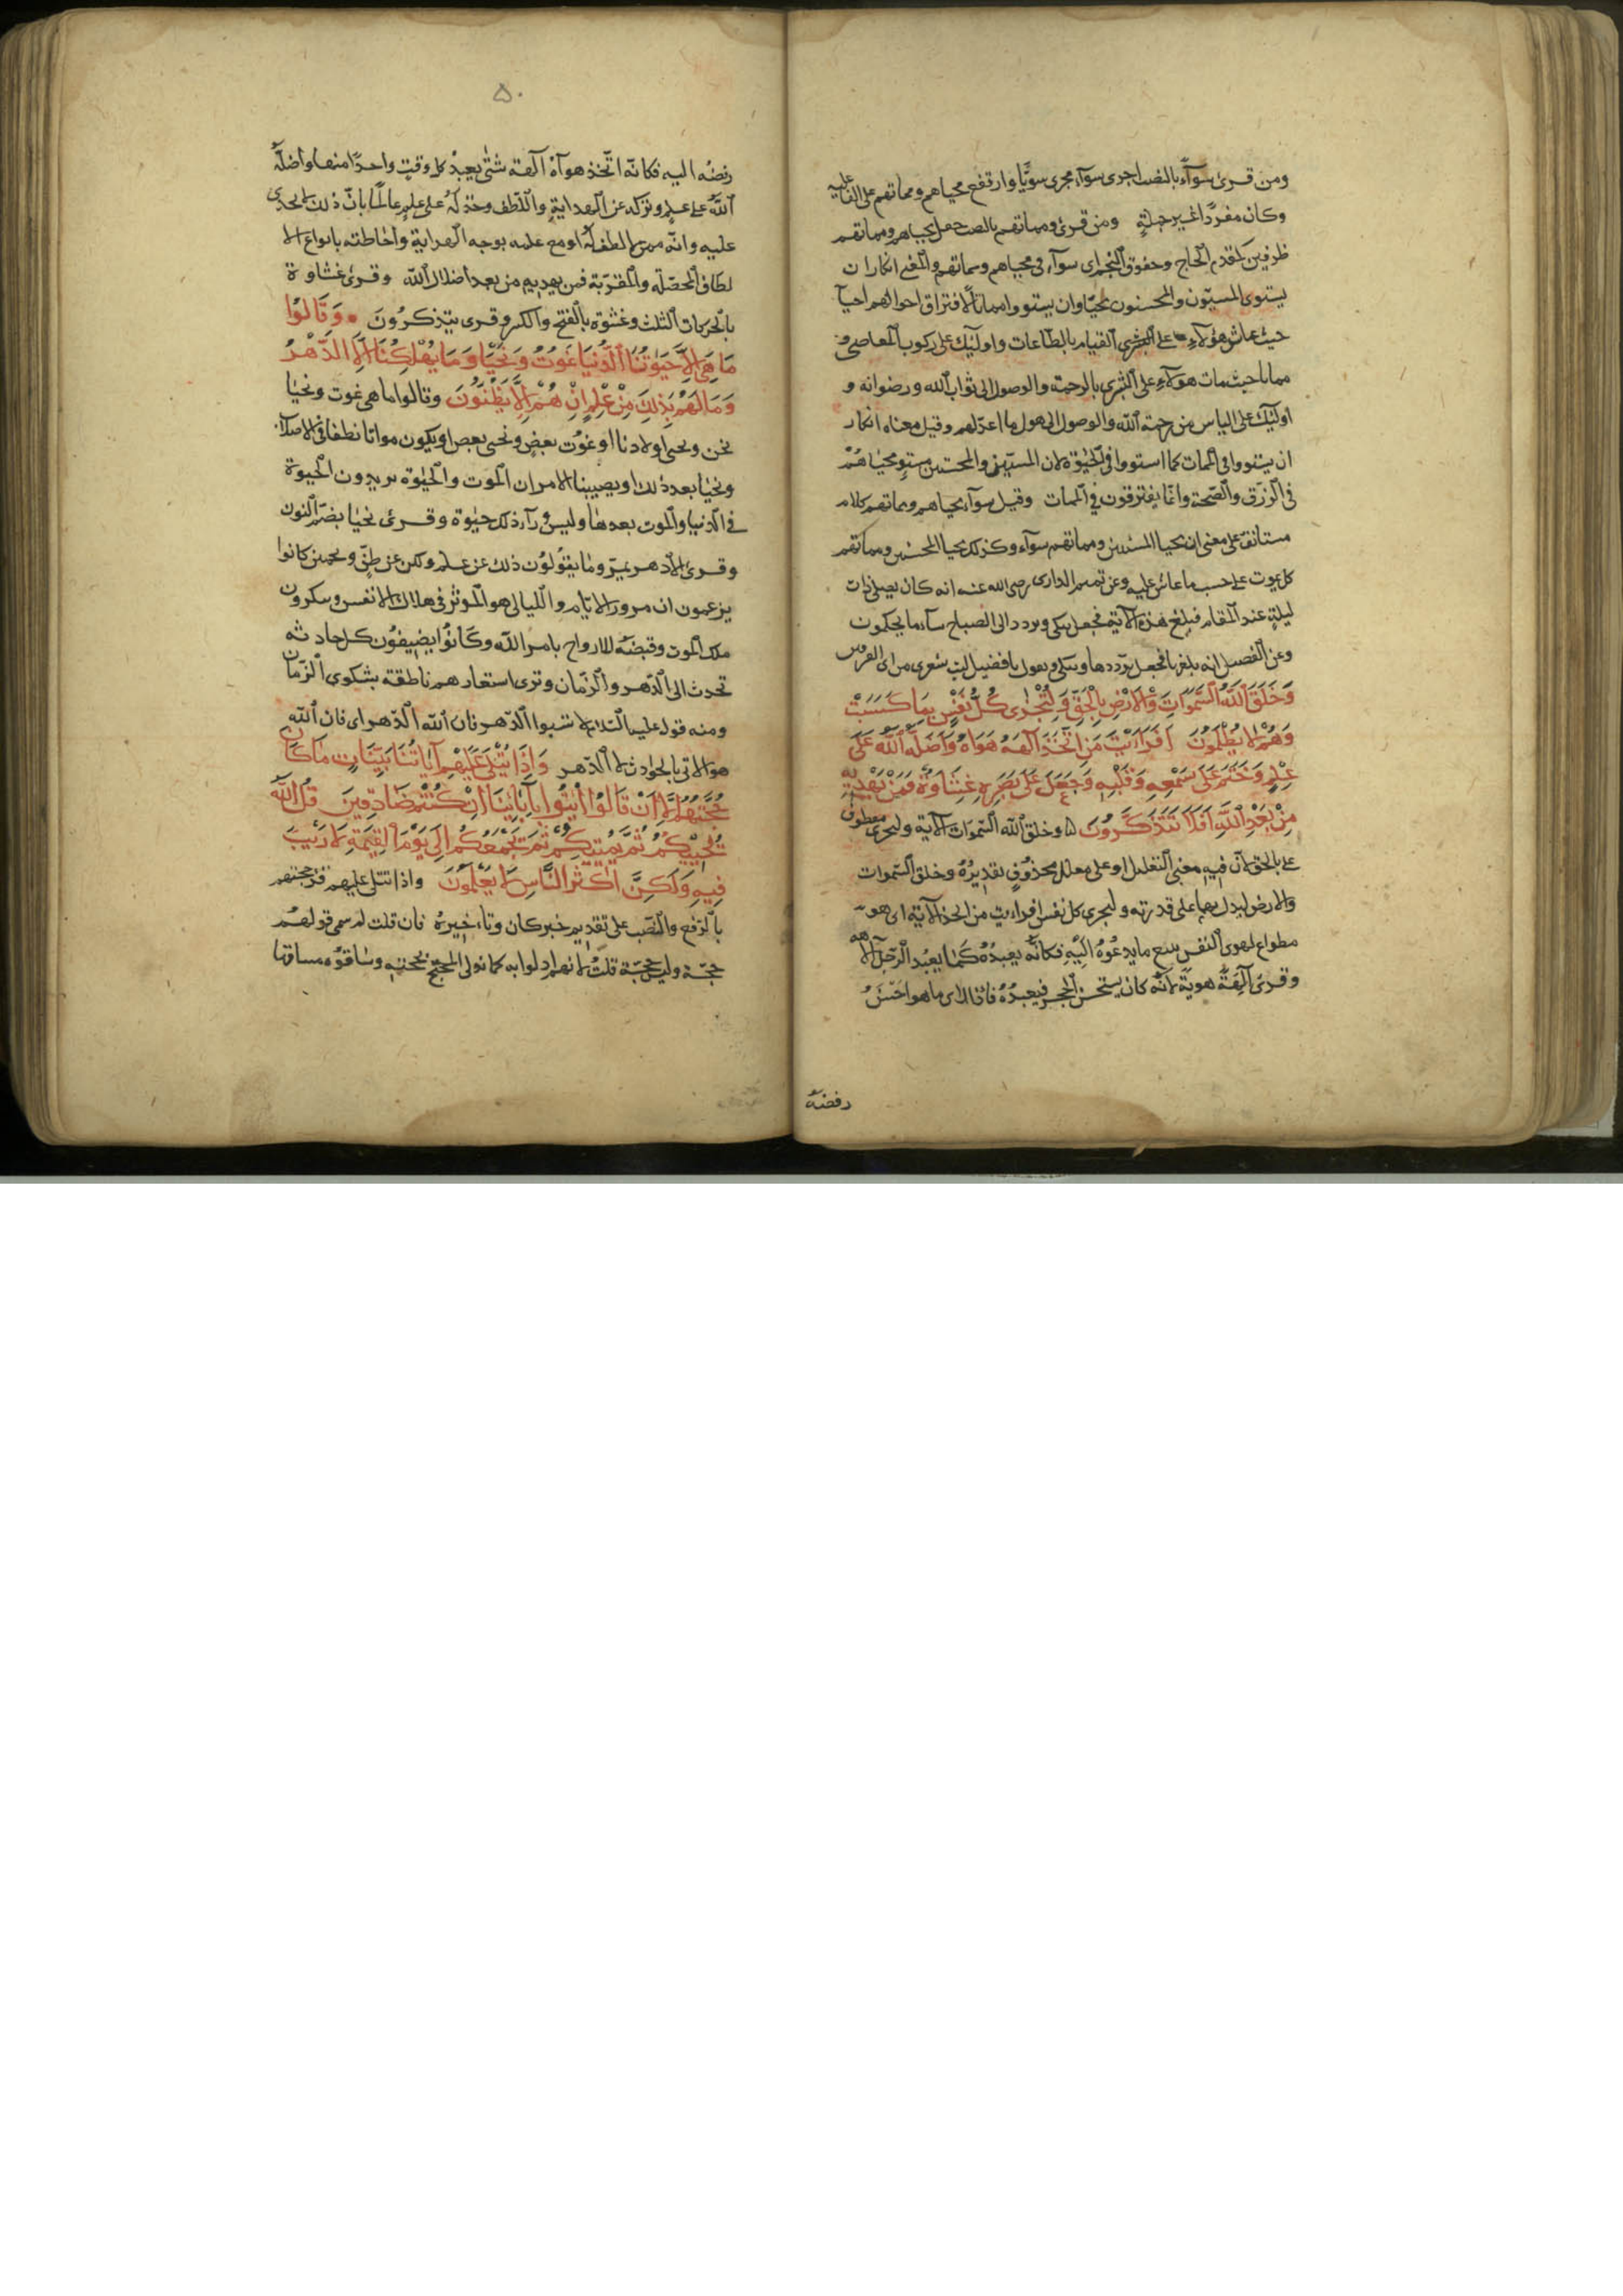 ومن قرئ سوآءً بالنصب اجرى سوآء مجرى سويًا وارتفع محياهم ومماتهم على الفاعليه
وكان مفردًا غير جملةٍ ومن قرئ ومماتهم بالنصب جعل محياهم ومماتهم
ظرفين كمقدم الحاج وحفوق النجم اى سوآء فى محياهم ومماتهم والمعنى انكار ان
يستوى المسيّون والمحسنون محيًا وان يستووا مماتًا لافتراق احوالهم احيآ
حيث عاش هؤلآءِ على القيام بالطاعات واولٓئك على ركوب المعاصى و
مماتا حيث مات هؤلآءِ على البشرى بالرحمة والوصول الى ثواب الله ورضوانه و
اولٓئك على الياس من رحمة الله والوصول الى هول ما اعدّ لهم وقيل معناه انكار
ان يستووا فى الممات كما استووا فى الحيٰوة لان المسيّين والمحسنين مستوٍ محياهم
فى الرزق والصّحة وانّما يفترقون فى الممات وقيل سوآء محياهم ومماتهم كلام
مستانف على معنى ان محيا المسيئين ومماتهم سوآء وكذلك محيا المحسنين ومماتهم
كل يموت على حسب ما عاش عليه وعن تميم الدارى رضى الله عنه انه كان يصلى ذات
ليلةٍ عند المقام فبلغ هذه الآية فجعل يبكى ويردد الى الصباح سآء ما يحكمون
وعن الفضيل انه بلغها فجعل يرددها ويبكى ويقول يا فضيل ليت شعرى من اى الفريقين
وَخَلَقَ اللّٰهُ السَّمٰوَاتِ وَالْاَرْضَ بِالْحَقِّ وَلِتُجْزٰى كُلُّ نَفْسٍ بِمَا كَسَبَتْ
وَهُمْ لَا يُظْلَمُونَ اَفَرَاَيْتَ مَنِ اتَّخَذَ اِلٰهَهُ هَوَاهُ وَاَضَلَّهُ اللّٰهُ عَلٰى
عِلْمٍ وَخَتَمَ عَلٰى سَمْعِهِ وَقَلْبِهِ وَجَعَلَ عَلٰى بَصَرِهِ غِشَاوَةً فَمَنْ يَهْدِيهِ
مِنْ بَعْدِ اللّٰهِ اَفَلَا تَتَذَكَّرُونَ وخلق الله السّمٰوات الآية ولتجزى معطوف
على بالحق لانّ فيه معنى التعليل او على معلل محذوفٍ تقديرُهُ وخلق السّمٰوات
والارض ليدل بها على قدرته ولتجزى كل نفس افرايت من اتخذ الآية اى هو
مطواع لهوى النفس يتبع ما يدعُوهُ اليْهِ فكانّه يعبدُهُ كما يعبُد الرّجل الٓهه
وقرئ آلِهَةً هويةً لانّه كان يستحسن الحجر فيعبدُهُ فاذا راى ما هو احسَنُ
رفضهُ
٥٠
رفضهُ اليه فكانّه اتّخذ هوآهُ آلهة شتّى يعبدُ كل وقتٍ واحدًا منها واضلّهُ
اللّٰهُ على علمٍ وتركه عن الهداية واللّطف وخذلَهُ على علمٍ عالمًا بانّ ذلك لا يجدى
عليه وانّه ممن لا لطف لهُ او مع علمه بوجه الهداية واحاطته بانواع الا
لطاف المحصّلة والمقرّبة فمن يهديه من بعد اضلال الله وقرئ غشاوة
بالحركات الثلث وغشوة بالفتح والكسر وقرى تتذكرُونَ وَقَالُوا
مَا هِيَ اِلَّا حَيَوتُنَا الدُّنْيَا نَمُوتُ وَنَحْيَا وَمَا يُهْلِكُنَا اِلَّا الدَّهْرُ
وَمَا لَهُمْ بِذٰلِكَ مِنْ عِلْمٍ اِنْ هُمْ اِلَّا يَظُنُّونَ وقالوا ما هى نموت ونحيَا
نحن ونحيى اولادنا او نموت بعضٍ ونحيى بعض او يكون مواتًا نطفًا فى الاصلاب
ونحيَا بعد ذلك او يصيبنا الامران الموت والحيٰوة يريدون الحيوة
فى الدنيا والموت بعدها وليس ورآء ذلك حيٰوة وقرئ نحيَا بضمّ النون
وقرئ الا دهر يمرّ وما يقولون ذلك عن علم ولكن عن ظنٍّ وتخمين كانوا
يزعمون ان مرور الايّام والليالى هو الموثر فى هلاك الانفس وينكرون
ملك الموت وقبضهُ للارواح بامر الله وكانُوا يضيفُون كل حادثه
تحدث الى الدّهر والزمان وترى اشعارهم ناطقة بشكوى الزّمان
ومنه قوله عليه السّلام لا تسبوا الدّهر فان الله الدّهر اى فان الله
هو الآتى بالحوادث لا الدّهر وَاِذَا تُتْلٰى عَلَيْهِمْ اٰيَاتُنَا بَيِّنَاتٍ مَا كَانَ
حُجَّتَهُمْ اِلَّا اَنْ قَالُوا ائْتُوا بِآبَائِنَا اِنْ كُنْتُمْ صَادِقِينَ قُلِ اللّٰهُ
يُحْيِيكُمْ ثُمَّ يُمِيتُكُمْ ثُمَّ يَجْمَعُكُمْ اِلٰى يَوْمِ الْقِيٰمَةِ لَا رَيْبَ
فِيهِ وَلٰكِنَّ اَكْثَرَ النَّاسِ لَا يَعْلَمُونَ واذا تتلى عليهم قرئ حجتهم
بالرّفع والنّصب على تقديم خبر كان وتاخيره فان قلت لم سمى قولهم
حجّة وليس بحجّة قلتُ لانهم ادلوا به كما يدلى المحتج بحجته وساقوُه مساقها